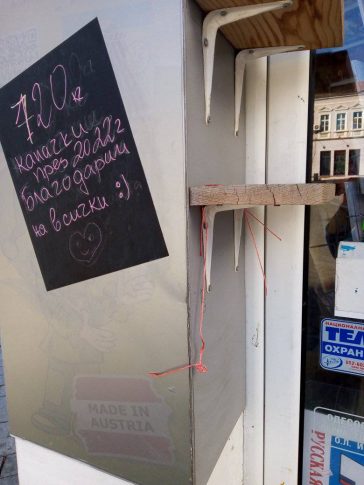 720 кг
капачки
през 2022г
благодарим
на всички :)
MADE IN
AUSTRIA
НАЦИОНАЛНА
ТЕЛ
ОХРАН
052-60
ОПЕРО
РУССКАЯ